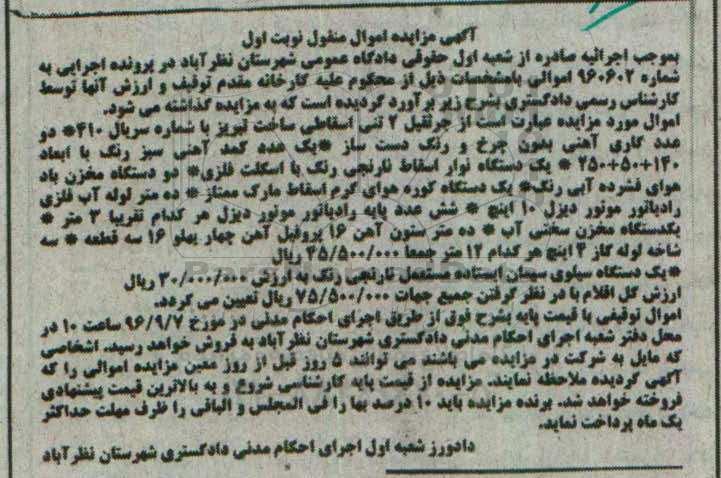 آگهی مزایده اموال منقول نوبت اول
بموجب اجرائیه صادره از شعبه اول حقوقی دادگاه عمومی شهرستان نظرآباد در پرونده اجرایی به
شماره ۹۶۰۶۰۲ اموالی بامشخصات ذیل از محکوم علیه کارخانه مقدم توقیف و ارزش آنها توسط
کارشناس رسمی دادگستری بشرح زیر برآورد گردیده است که به مزایده گذاشته می شود.
اموال مورد مزایده عبارت است از جرثقیل ۲ تنی اسقاطی ساخت تبریز با شماره سریال ۴۱۰* دو
عدد گاری آهنی بدون چرخ و رنگ دست ساز *یک عدد کمد آهنی سبز رنگ با ابعاد
۱۴۰+۵۰+۲۵۰ * یک دستگاه نوار اسقاط نارنجی رنگ با اسکلت فلزی* دو دستگاه مخزن باد
هوای فشرده آبی رنگ* یک دستگاه کوره هوای گرم اسقاط مارک ممتاز * ده متر لوله آب فلزی
رادیاتور موتور دیزل ۱۰ اینچ * شش عدد پایه رادیاتور موتور دیزل هر کدام تقریبا ۳ متر *
یکدستگاه مخزن سختی آب * ده متر ستون آهن ۱۶ پروفیل آهن چهار پهلو ۱۶ سه قطعه * سه
شاخه لوله گاز ۴ اینچ هر کدام ۱۲ متر جمعا ۴۵/۵۰۰/۰۰۰ ریال
*یک دستگاه سیلوی سیمان ایستاده مستعمل نارنجی رنگ به ارزش ۳۰/۰۰۰/۰۰۰ ریال
ارزش کل اقلام با در نظر گرفتن جمیع جهات ۷۵/۵۰۰/۰۰۰ ریال تعیین می گردد.
اموال توقیفی با قیمت پایه بشرح فوق از طریق اجرای احکام مدنی در مورخ ۹۶/۹/۷ ساعت ۱۰ در
محل دفتر شعبه اجرای احکام مدنی دادگستری شهرستان نظرآباد به فروش خواهد رسید. اشخاصی
که مایل به شرکت در مزایده می باشند می توانند ۵ روز قبل از روز معین مزایده اموالی را که
آگهی گردیده ملاحظه نمایند. مزایده از قیمت پایه کارشناسی شروع و به بالاترین قیمت پیشنهادی
فروخته خواهد شد. برنده مزایده باید ۱۰ درصد بها را فی المجلس و الباقی را ظرف مهلت حداکثر
یک ماه پرداخت نماید.
دادورز شعبه اول اجرای احکام مدنی دادگستری شهرستان نظرآباد